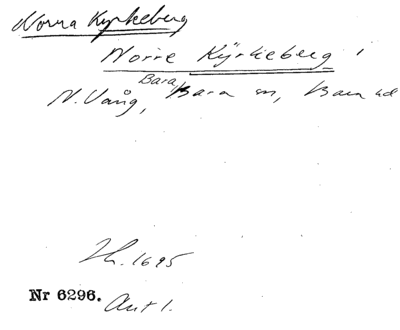 Norra Kyrkeberg
Norre Kÿrkeberg
Bara
N. Vång, Bara sn, Bara hd
Jb. 1695
Nr 6296. Avt 1.